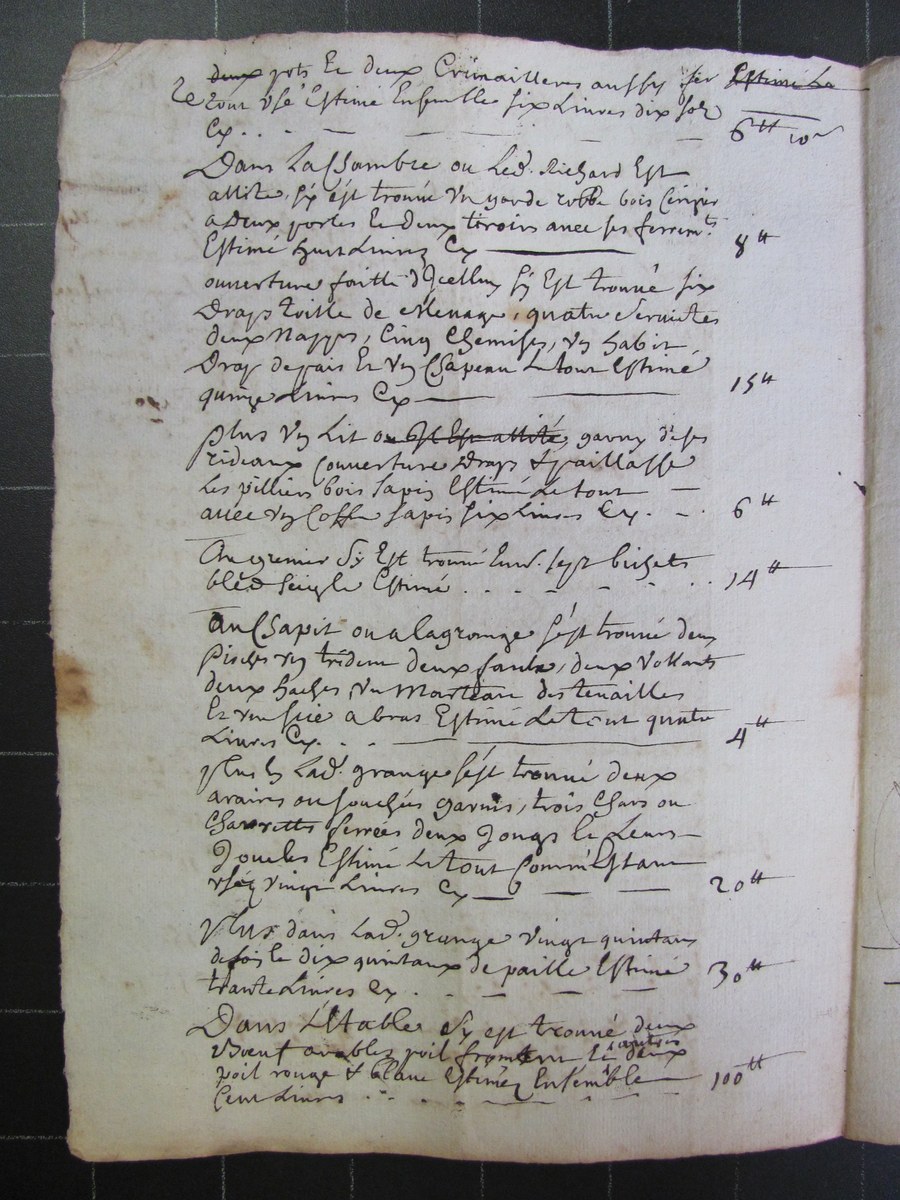 deux pots Et deux Crimailleres aussy fer Estimé Le
Le tout usé Estimé Ensemble six Livres dix sols
Cy . . . 6 tt 10 s
Dans La Chambre ou Led. Richard Est
alité, s'y est trouvé un garde robbe bois Cerisier
a Deux portes Et deux tiroirs avec ses ferrem.ts
Estimé huit Livres Cy 8 tt
ouverture faitte d'Icelluy s'y Est trouvé six
Draps toille de Menage, quatre serviettes
deux Nappes, Cinq Chemises, un habit
Drap de païs Et un Chapeau Le tout Estimé
quinze Livres Cy 15 tt
plus un Lit ou Il Est allité, garny de ses
rideaux Couverture Draps & paillasse
Les pilliers bois sapin Estimé Le tout
avec un Coffre sapin six Livres Cy . 6 tt
Au grenier s'y Est trouvé Env. sept bichets
bled seigle Estimé . . . 14 tt
Au Chapit ou a la grange s'est trouvé deux
un trident deux faulx, deux Vollants
deux haches, un Marteau des tenailles
Et une scie a bras Estimé Le tout quatre
Livres Cy . . . 4 tt
plus En Lad. grange s'est trouvé deux
araires ou souchées garnis, trois Chars ou
Charrettes ferrées deux Jougs Et Leurs
Joucles Estimé Le tout Comm'Estant
usés vingt Livres Cy 20 tt
Plus dans Lad. grange vingt quintaux
de foin Et dix quintaux de paille Estimé
trante Livres Cy . 30 tt
Dans L'Etable s'y est trouvé deux
Boeuf arables poil froment Et deux autres
poil rouge & blanc Estiméz Ensemble 100 tt
Cent Livres . . .